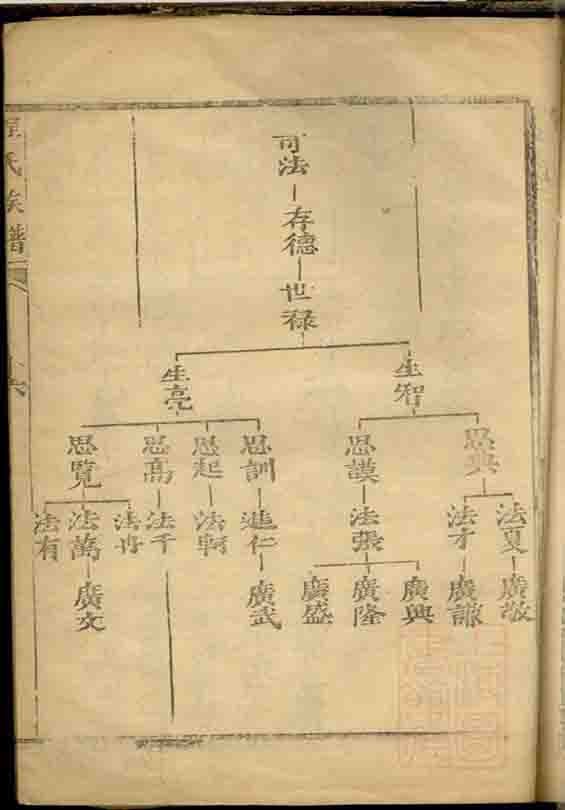 司法
存德
世祿
生智
生亮
思典
思謨
思訓
思起
思高
思覽
法夏
法才
法張
進仁
法軻
法千
法冉
法萬
法有
廣敬
廣謙
廣興
廣隆
廣盛
廣武
廣文
氏族譜